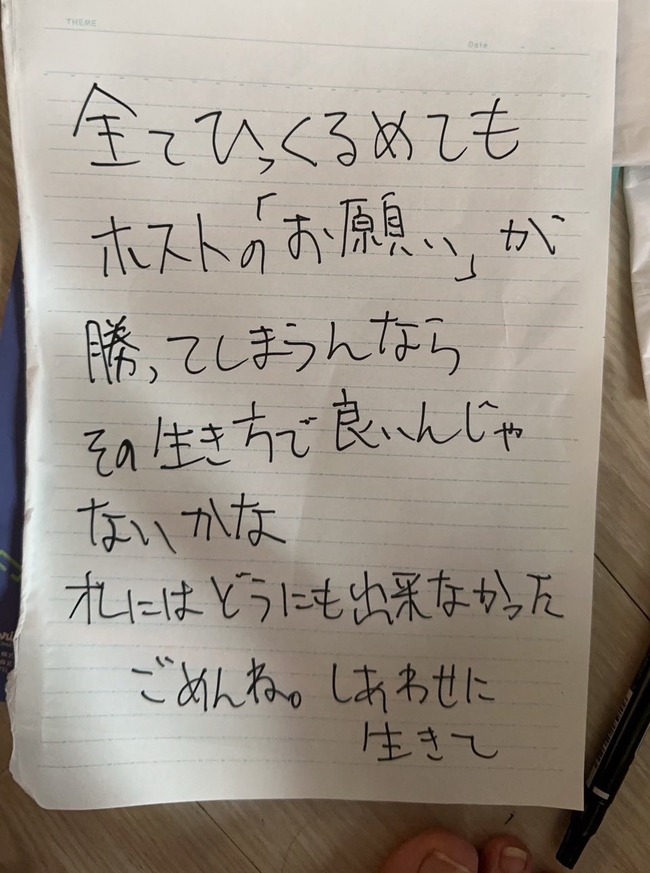 THEME
Date
全てひっくるめても
ホストの「お願い」が
勝ってしまうんなら
その生き方で良いんじゃ
ないかな
オレにはどうにも出来なかった
ごめんね。しあわせに
生きて